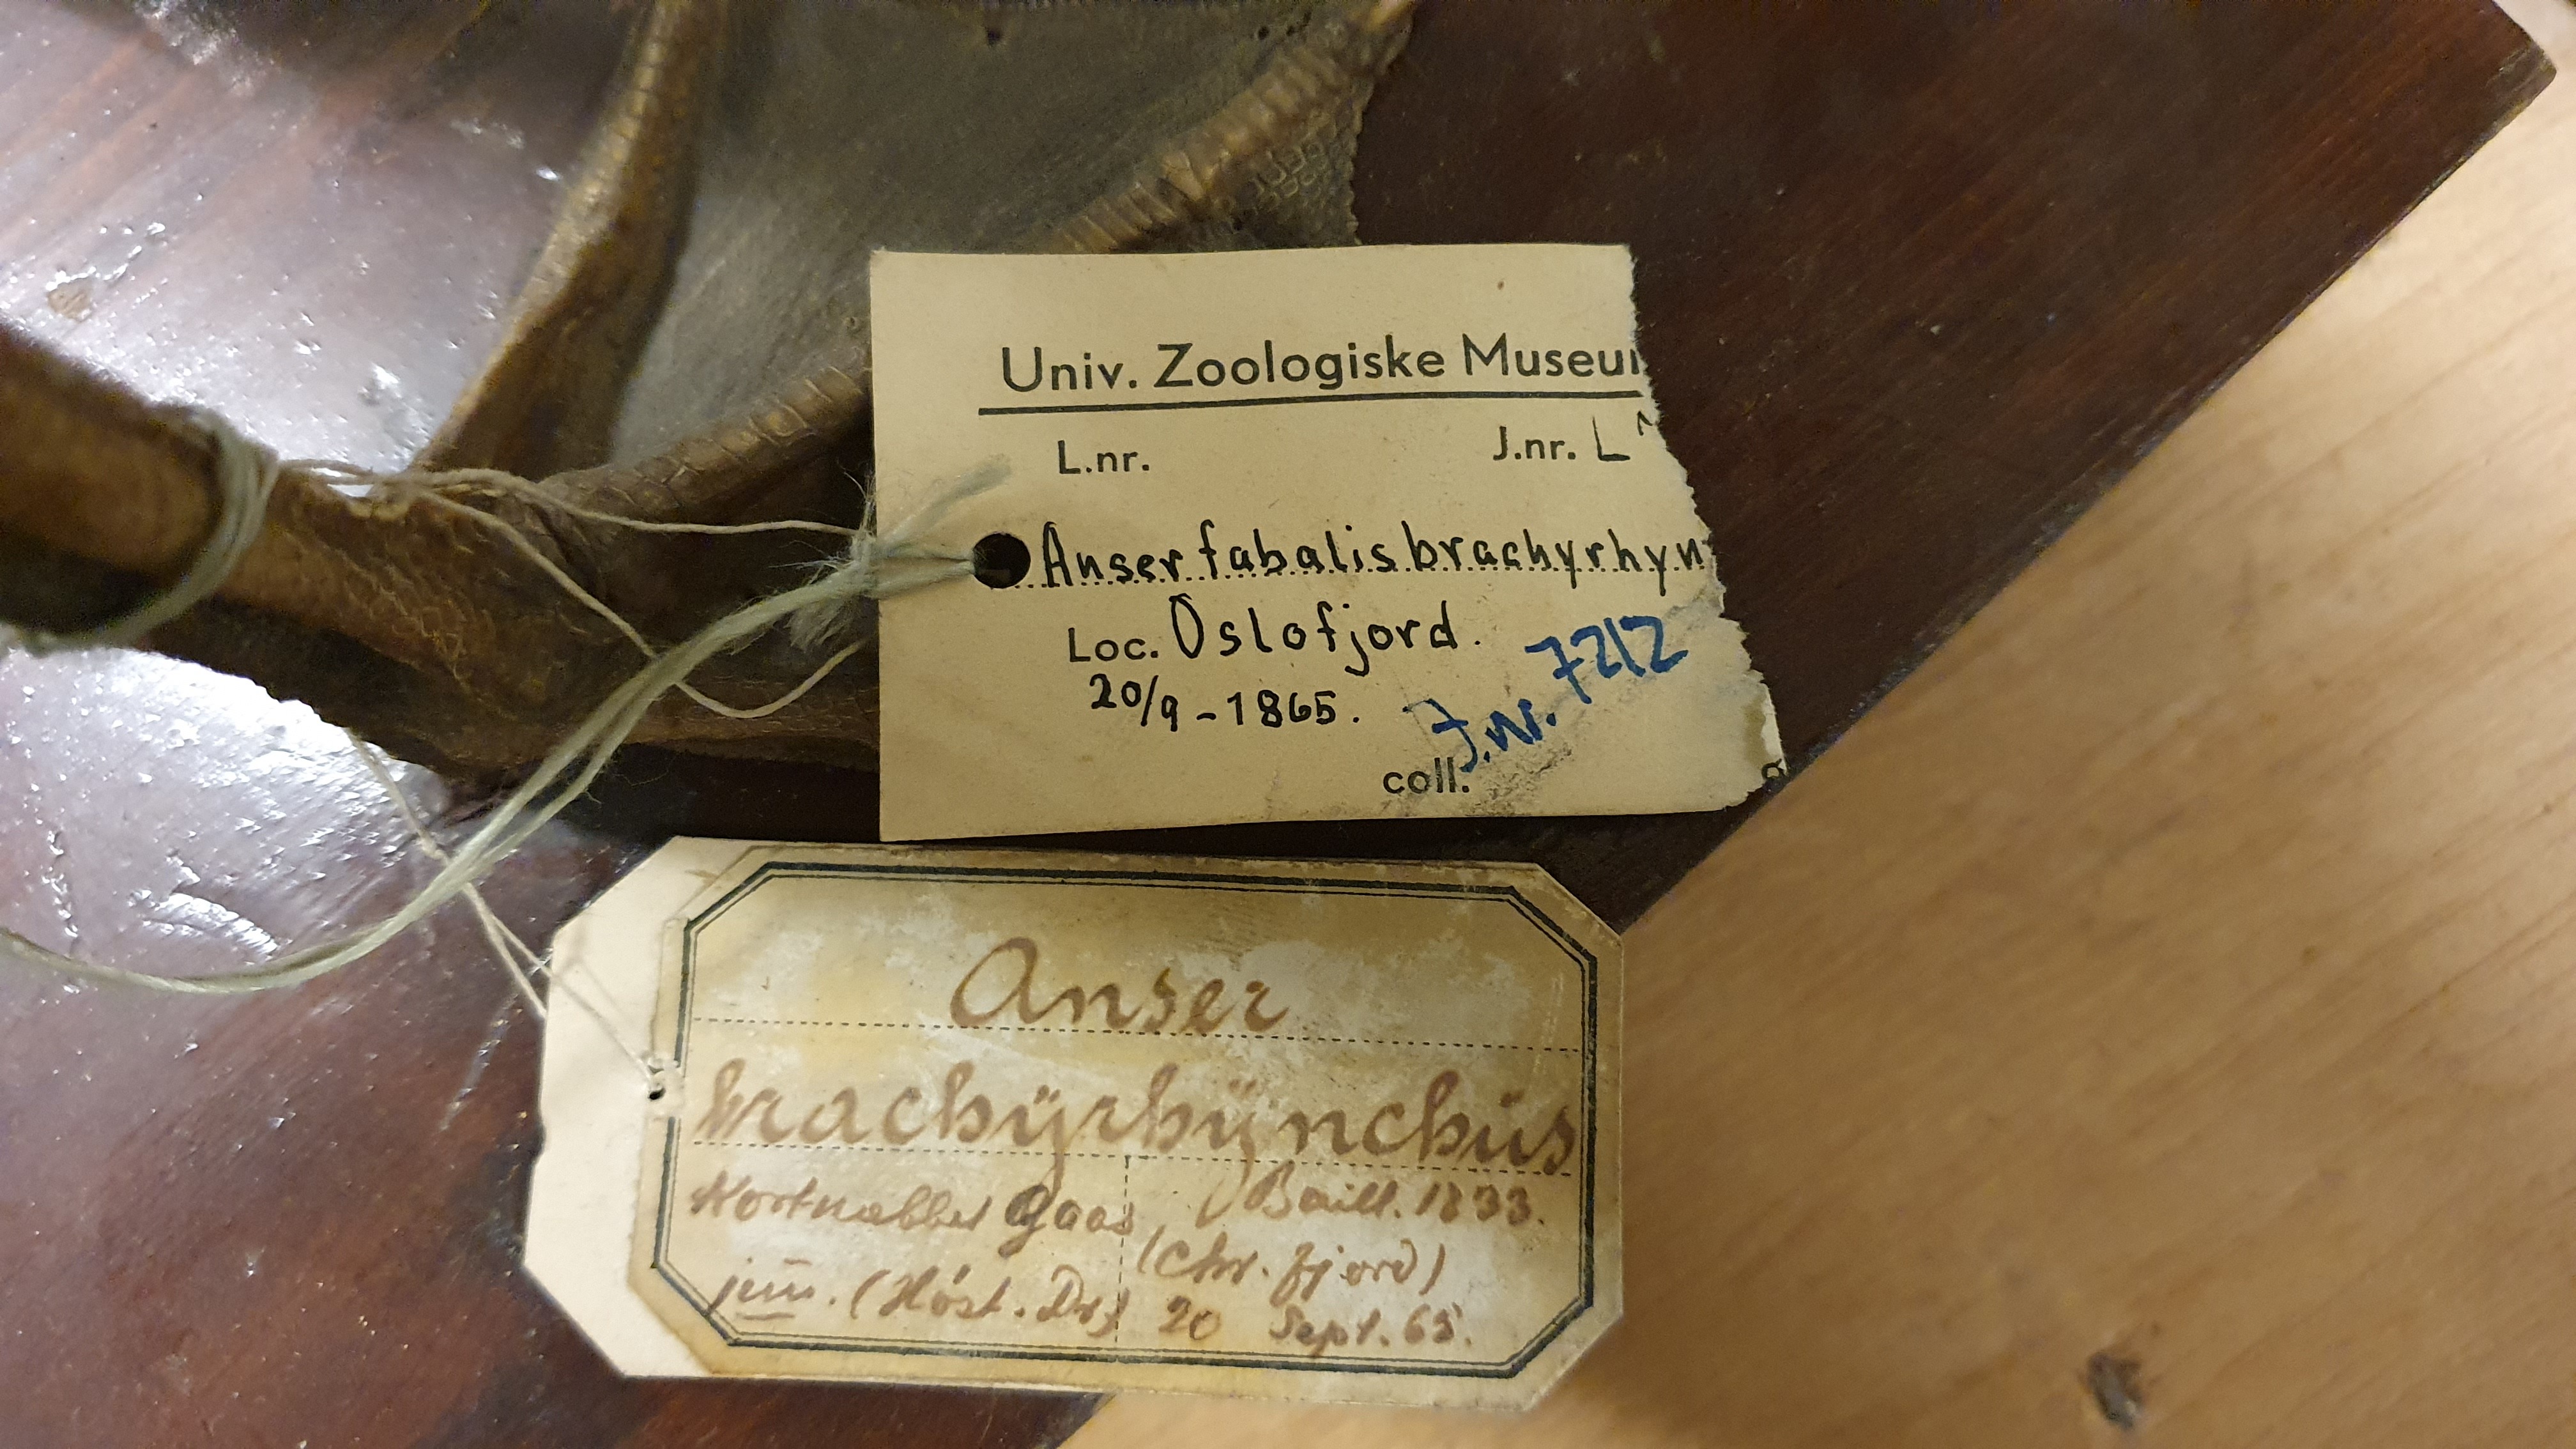 Univ. Zoologiske Museu
L.nr. J.nr. L
Anser fabalis brachyrhyn
Loc. Oslofjord.
20/9-1865.
J.nr. 7212
coll.
Anser
brachÿrhÿnchŭs
Kortnæbbet Gaas, Baill. 1833.
(Chr. fjord)
juv. (Höst. Dr) 20 Sept. 65.